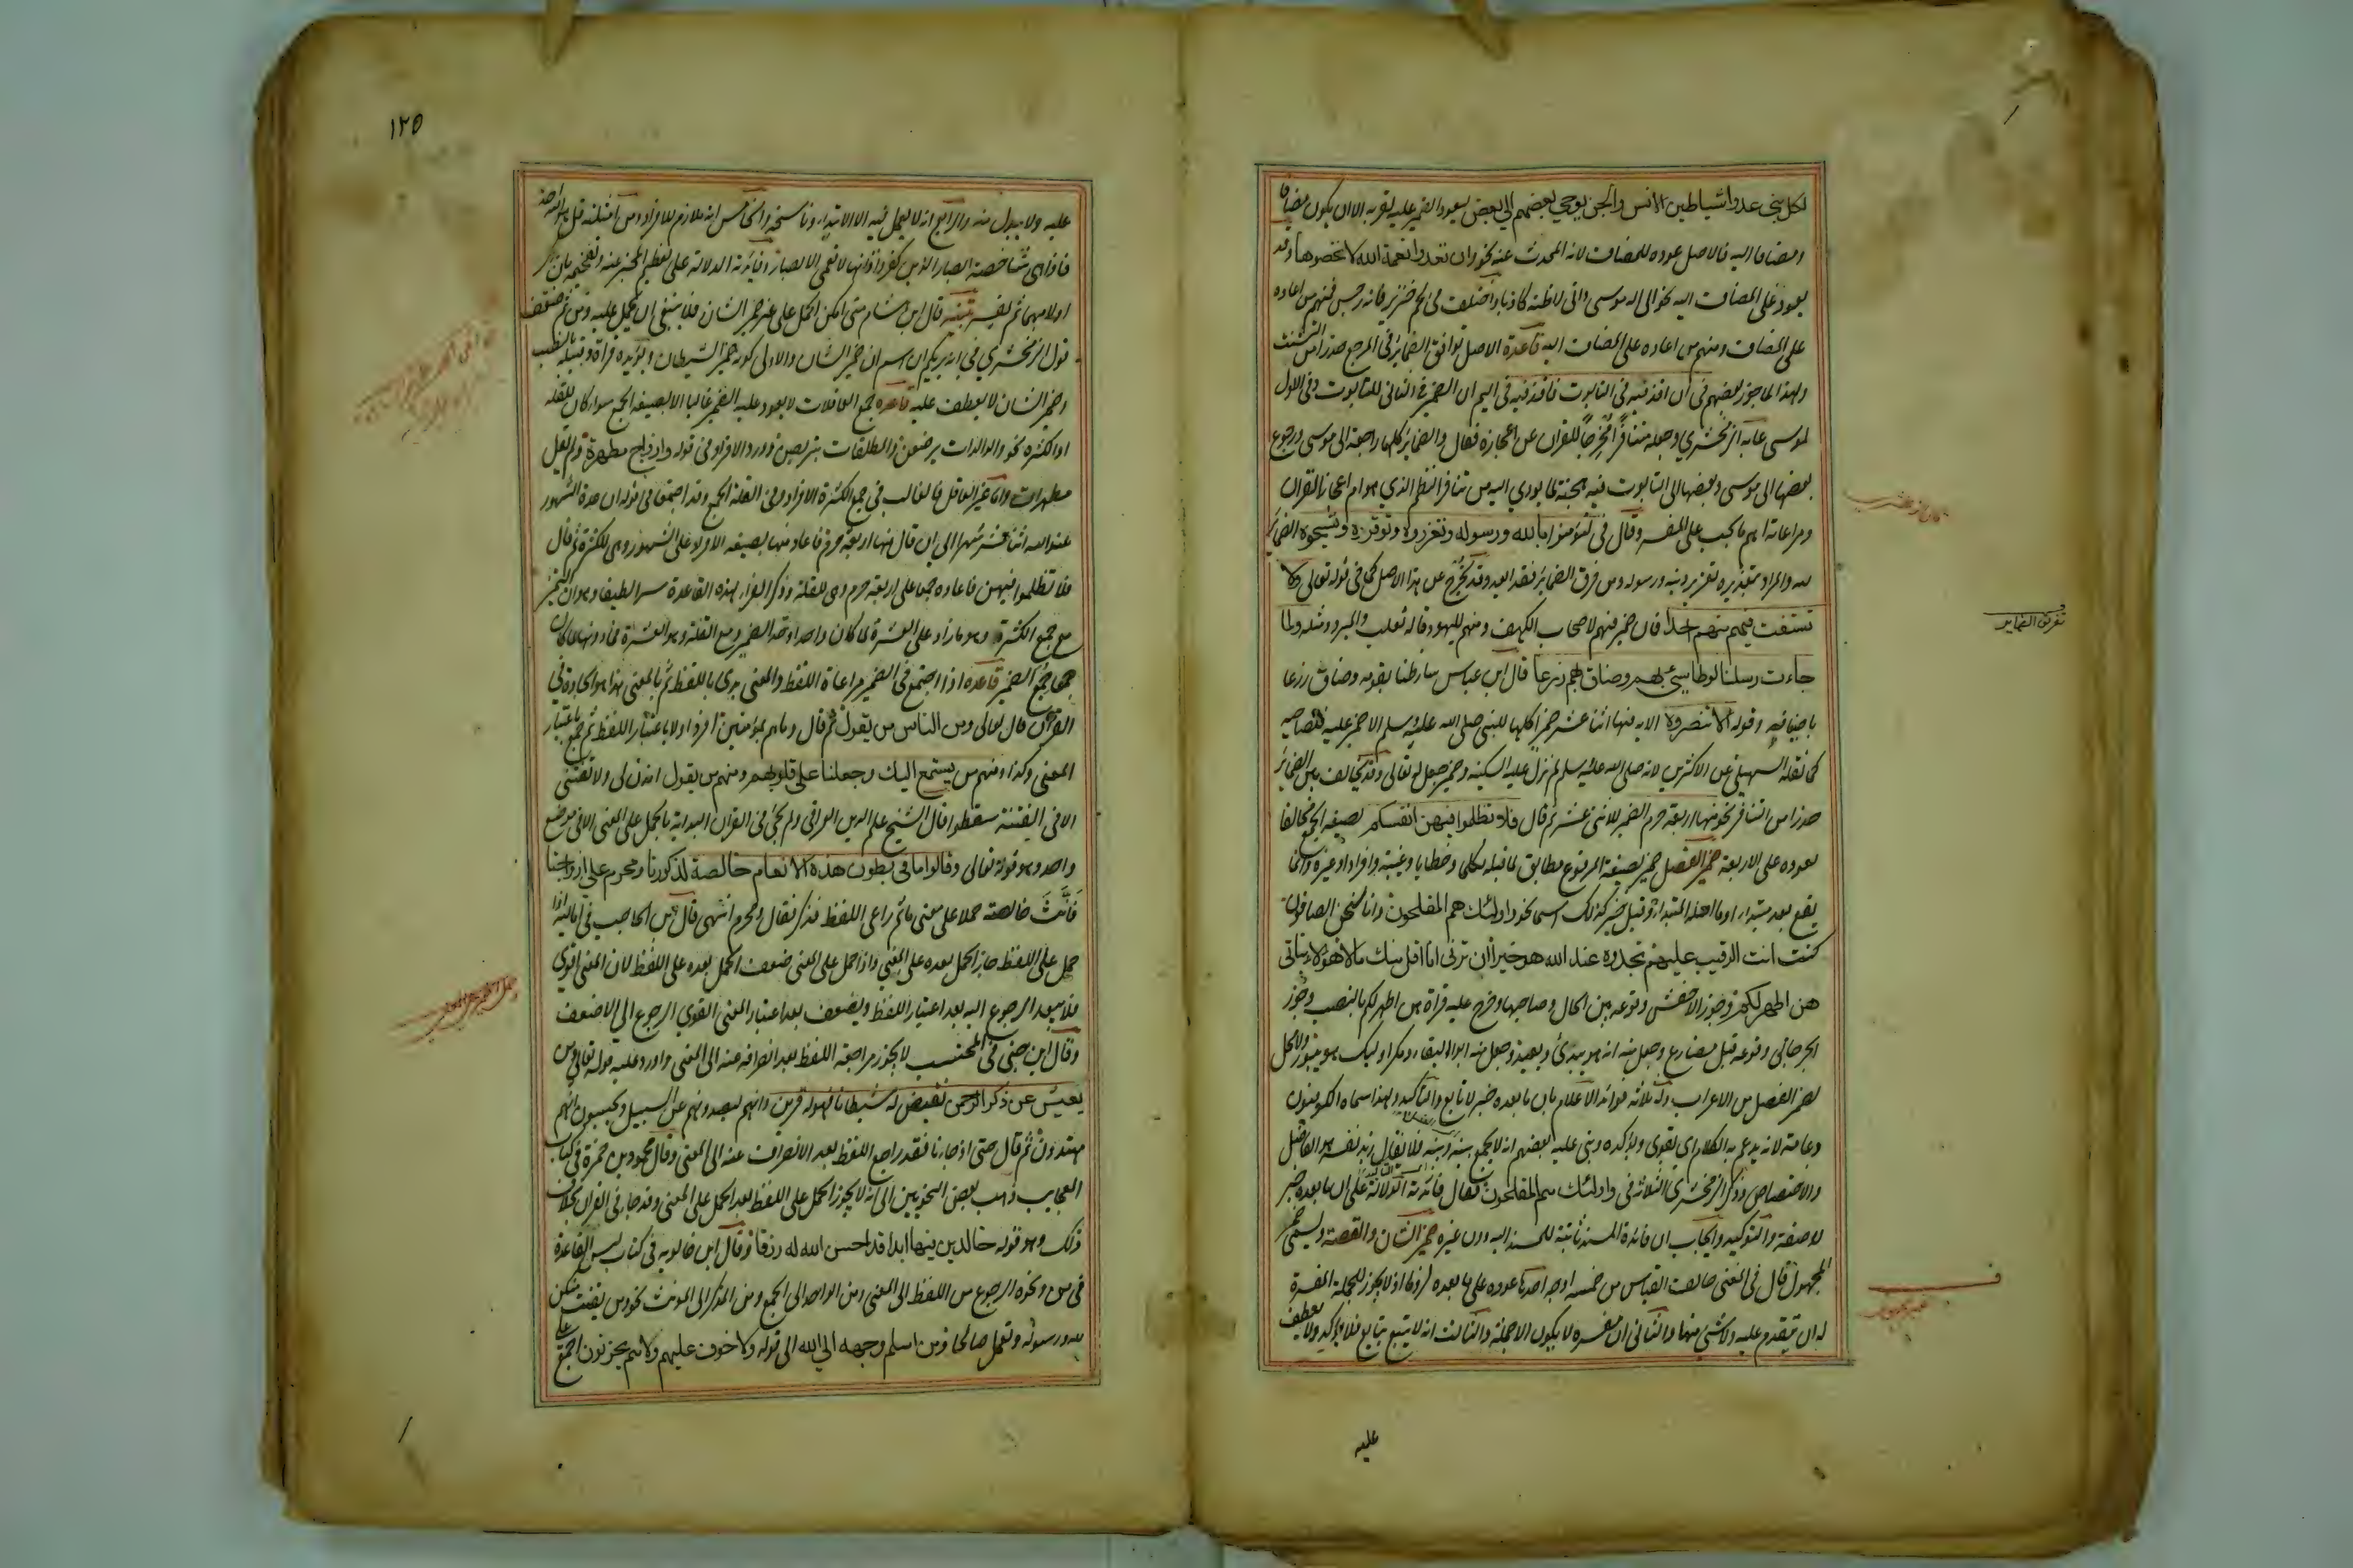 لكل نبي عدوا شياطين الانس والجن يوحي بعضهم الى بعض ليعود الضمير عليه لقربه الا ان يكون مضافا
ومضافا اليه فالاصل عوده للمضاف لانه المحدث عنه نحو وان تعدوا نعمة الله لا تحصوها وقد
يعود على المضاف اليه نحو الى اله موسى واني لاظنه كاذبا واختلف في لحم خنزير فانه رجس فمنهم من اعاده
على المضاف ومنهم من اعاده على المضاف اليه قاعدة الاصل توافق الضمائر في المرجع حذرا من التشتت
ولهذا لما جوز بعضهم في ان اقذفيه في التابوت فاقذفيه في اليم ان الضمير في الثاني للتابوت وفي الاول
لموسى عابه الزمخشري وجعله تنافرا مخرجا للقران عن اعجازه فقال والضمائر كلها راجعة الى موسى ورجوع
بعضها الى موسى وبعضها الى التابوت فيه هجنة لما يودي اليه من تنافر النظم الذي هو ام اعجاز القران
ومراعاته اهم ما يجب على المفسر وقال في لتؤمنوا بالله ورسوله وتعزروه وتوقروه وتسبحوه الضمائر
لله والمراد بتعزيره تعزير دينه ورسوله ومن فرق الضمائر فقد ابعد وقد يخرج عن هذا الاصل كما في قوله تعالى ولا
تستفت فيهم منهم احدا فان ضمير فيهم لاصحاب الكهف ومنهم لليهود قاله ثعلب والمبرد ومثله ولما
جاءت رسلنا لوطا سيء بهم وضاق بهم ذرعا قال ابن عباس ساء ظنا بقومه وضاق ذرعا
باضيافه وقوله الا تنصروه الاية فيها اثنا عشر ضميرا كلها للنبي صلى الله عليه وسلم الا ضمير عليه فلصاحبه
كما نقله السهيلي عن الاكثرين لانه صلى الله عليه وسلم لم تزل عليه السكينة وضمير جعل له تعالى وقد يخالف بين الضمائر
حذرا من التنافر نحو منها اربعة حرم الضمير للاثني عشر ثم قال فلا تظلموا فيهن انفسكم بصيغة الجمع مخالفا
لعوده على الاربعة ضمير الفصل ضمير بصيغة المرفوع مطابق لما قبله تكلما وخطابا وغيبة وافرادا وغيره وانما
يقع بعد مبتدا او ما اصله المبتدا وقبل خبر كذلك اسما نحو واولئك هم المفلحون وانا لنحن الصافون
كنت انت الرقيب عليهم تجدوه عند الله هو خيرا ان ترن انا اقل منك مالا هؤلاء بناتي
هن اطهر لكم وجوز الاخفش وقوعه بين الحال وصاحبها وخرج عليه قراة هن اطهر لكم بالنصب وجوز
الجرجاني وقوعه قبل مضارع وجعل منه انه هو يبدئ ويعيد وجعل منه ابو البقاء ومكر اوليك هو يبور ولا محل
لضمير الفصل من الاعراب وله ثلاثة فوائد الاعلام بان ما بعده خبر لا تابع والتاكيد ولهذا سماه الكوفيون
دعامة لانه يدعم به الكلام اي يقوى ويؤكده وبنى عليه بعضهم انه لا يجمع بينه وبينه فلا يقال زيد نفسه هو الفاضل
والاختصاص وذكر الزمخشري الثلاثة في واولئك هم المفلحون فقال فائدته الدلالة على ان ما بعده خبر
لا صفة والتوكيد وايجاب ان فائدة المسند ثابتة للمسند اليه دون غيره ضمير الشان والقصة ويسمى ضمير
المجهول قال في المغني خالف القياس من خمسة اوجه احدها عوده على ما بعده لزوما اذ لا يجوز للجملة المفسرة
له ان تتقدم عليه ولا شئ منها والثاني ان مفسره لا يكون الا جملة والثالث انه لا يتبع بتابع فلا يؤكد ولا يعطف
عليه
تفريق الضماير
١٢٥
عليه ولا يبدل منه والرابع انه لا يعمل فيه الا الابتداء وناسخه والخامس انه ملازم للافراد ومن امثلته قل هو الله احد
فاذا هي شاخصة ابصار الذين كفروا فانها لا تعمى الابصار وفائدته الدلالة على تعظيم المخبر عنه وتفخيمه بان يذكر
اولا مبهما ثم يفسر تنبيه قال ابن هشام متى امكن الحمل على غير ضمير الشان فلا ينبغي ان يحمل عليه ومن ثم ضعف
قول الزمخشري في انه يريكم ان اسم ان ضمير الشان والاولى كونه ضمير الشيطان ويؤيده قراة وقبيله بالنصب
وضمير الشان لا يعطف عليه قاعدة جمع العاقلات لا يعود عليه الضمير غالبا الا بصيغة الجمع سواء كان للقلة
او للكثرة نحو والوالدات يرضعن والمطلقات يتربصن وورد الافراد في قوله وازواج مطهرة ولم يقل
مطهرات واما غير العاقل فالغالب في جمع الكثرة الافراد وفي القلة الجمع وقد اجتمعا في قوله ان عدة الشهور
عند الله اثنا عشر شهرا الى ان قال منها اربعة حرم فاعاد منها بصيغة الافراد على الشهور وهي للكثرة ثم قال
فلا تظلموا فيهن فاعاده جمعا على اربعة حرم وهي للقلة وذكر الفراء لهذه القاعدة سرا لطيفا وهو ان المميز
مع جمع الكثرة وهو ما زاد على العشرة لما كان واحدا وحد الضمير ومع القلة وهو العشرة فما دونها لما كان
جمعا جمع الضمير قاعدة اذا اجتمع في الضمير مراعاة اللفظ والمعنى بدئ باللفظ ثم بالمعنى هذا هو الجادة في
القران قال تعالى ومن الناس من يقول ثم قال وما هم بمؤمنين افرد اولا باعتبار اللفظ ثم جمع باعتبار
المعنى وكذا ومنهم من يستمع اليك وجعلنا على قلوبهم ومنهم من يقول ائذن لي ولا تفتني
الا في الفتنة سقطوا قال الشيخ علم الدين العراقي ولم يجئ في القران البداية بالحمل على المعنى الا في موضع
واحد وهو قوله تعالى وقالوا ما في بطون هذه الانعام خالصة لذكورنا ومحرم على ازواجنا
فانث خالصة حملا على معنى ما ثم راعى اللفظ فذكر فقال ومحرم انتهى قال ابن الحاجب في اماليه اذا
حمل على اللفظ جاز الحمل بعده على المعنى واذا حمل على المعنى ضعف الحمل بعده على اللفظ لان المعنى اقوى
فلا يبعد الرجوع اليه بعد اعتبار اللفظ ويضعف بعد اعتبار المعنى القوي الرجوع الى الاضعف
وقال ابن جني في المحتسب لا يجوز مراجعة اللفظ بعد انصرافه عنه الى المعنى واورد عليه قوله تعالى ومن
يعش عن ذكر الرحمن نقيض له شيطانا فهو له قرين وانهم ليصدونهم عن السبيل ويحسبون انهم
مهتدون ثم قال حتى اذا جاءنا فقد راجع اللفظ بعد الانصراف عنه الى المعنى وقال محمود بن حمزة في كتاب
العجايب ذهب بعض النحويين الى انه لا يجوز الحمل على اللفظ بعد الحمل على المعنى وقد جاء في القران بخلاف
ذلك وهو قوله خالدين فيها ابدا قد احسن الله له رزقا وقال ابن خالويه في كتاب ليس القاعدة
في من ونحوه الرجوع من اللفظ الى المعنى ومن الواحد الى الجمع ومن المذكر الى المونث نحو ومن يقنت منكن
لله ورسوله وتعمل صالحا ومن اسلم وجهه الى الله الى قوله ولا خوف عليهم ولا هم يحزنون اجمع على